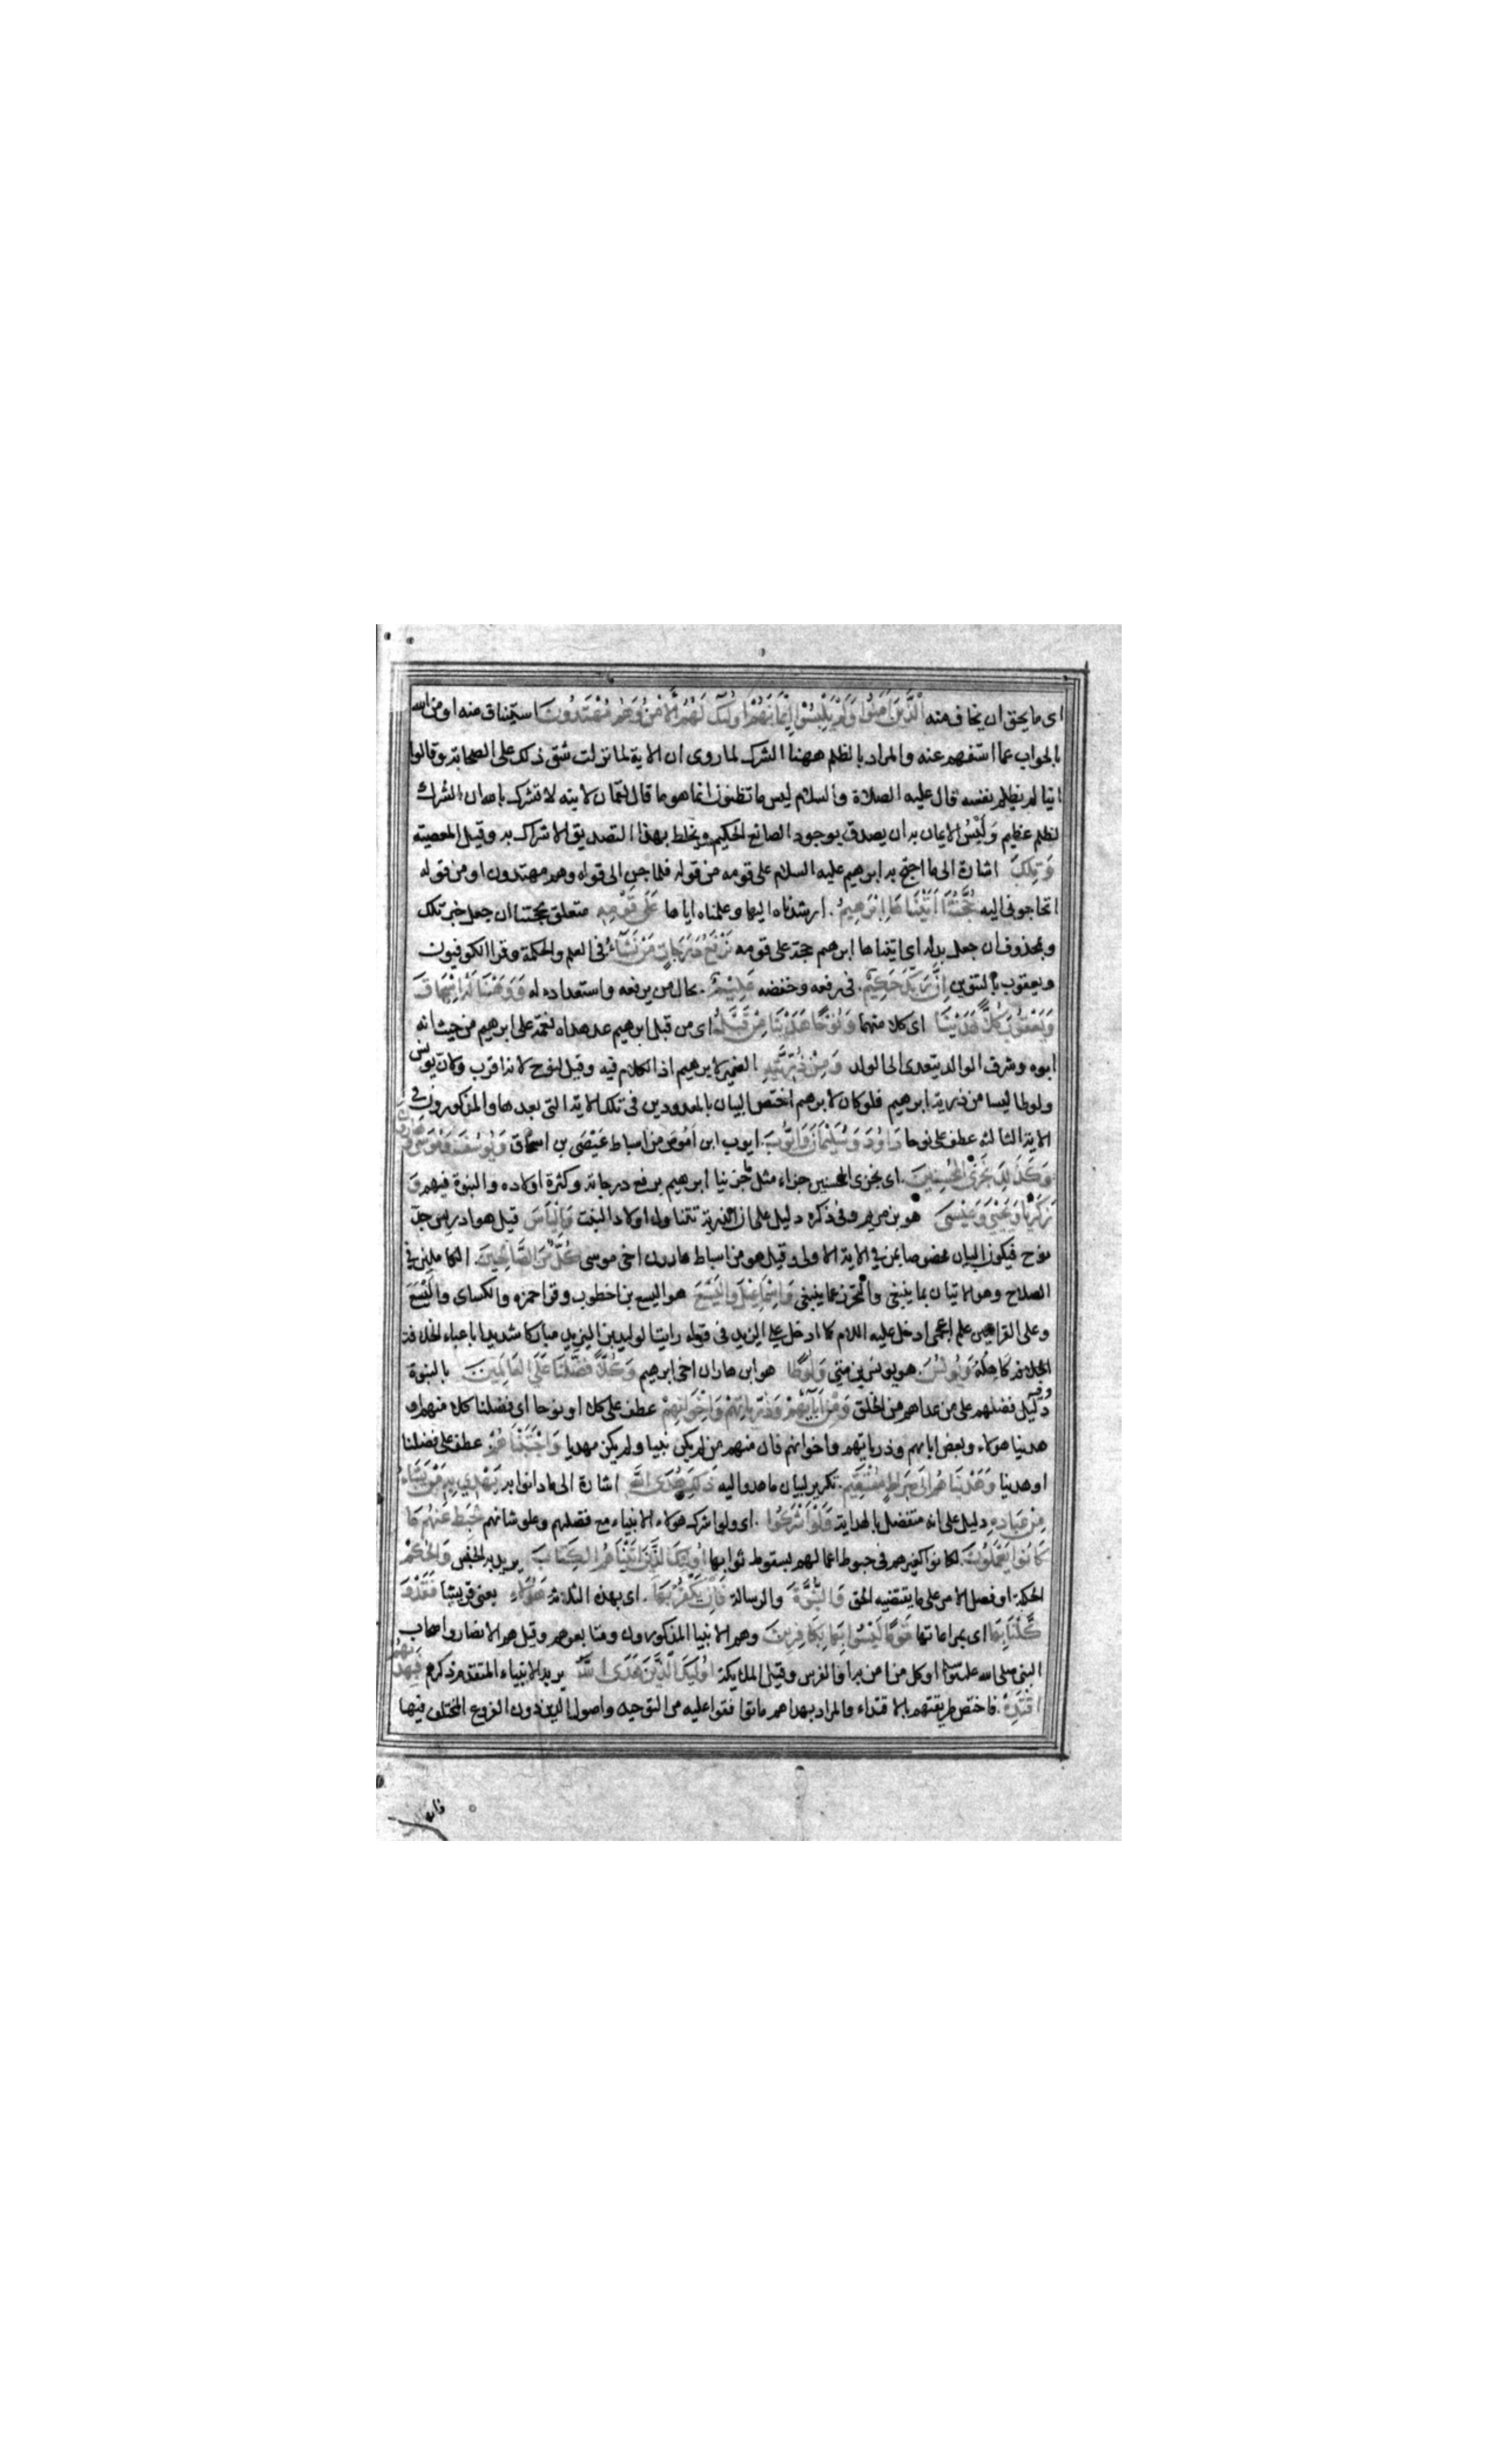 اى ما يحق ان يخاف منه الَّذِينَ آمَنُوا وَلَمْ يَلْبِسُوا إِيمَانَهُمْ أُولَٰئِكَ لَهُمُ الْأَمْنُ وَهُمْ مُهْتَدُونَ استيناف منه او من الله
بالجواب عما استفهم عنه والمراد بالظلم ههنا الشرك لما روى ان الاية لما نزلت شق ذلك على الصحابة وقالوا
اينا لم يظلم نفسه قال عليه الصلاة والسلام ليس ما تظنون انما هو ما قال لقمان لابنه لا تشرك بالله ان الشرك
لظلم عظيم وَلَبْسُ الايمان به ان يصدق بوجود الصانع الحكيم ويخلط بهذا التصديق الاشراك به وقيل المعصية
وَتِلْكَ اشارة الى ما احتج به ابرهيم عليه السلام على قومه من قوله فلما جن الى قوله وهم مهتدون او من قوله
اتحاجونى اليه حُجَّتُنَا آتَيْنَاهَا إِبْرَاهِيمَ ارشدناه اليها وعلمناه اياها عَلَى قَوْمِهِ متعلق بحجتنا ان جعل خبر تلك
وبمحذوف ان جعل بدله اى اتيناها ابرهيم حجة على قومه نَرْفَعُ دَرَجَاتٍ مَنْ نَشَاءُ فى العلم والحكمة وقرا الكوفيون
ويعقوب بالتنوين إِنَّ رَبَّكَ حَكِيمٌ فى رفعه وخفضه عَلِيمٌ بحال من يرفعه واستعداده له وَوَهَبْنَا لَهُ إِسْحَاقَ
وَيَعْقُوبَ كُلًّا هَدَيْنَا اى كلا منهما وَنُوحًا هَدَيْنَا مِنْ قَبْلُ اى من قبل ابرهيم عد هداه نعمة على ابرهيم من حيث انه
ابوه وشرف الوالد يتعدى الى الولد وَمِنْ ذُرِّيَّتِهِ الضمير لابرهيم اذ الكلام فيه وقيل لنوح لانه اقرب وكان يونس
ولوطا ليسا من ذرية ابرهيم فلو كان لابرهيم اختص البيان بالمعدودين فى تلك الاية التى بعدها والمذكورون فى
الاية الثالثه عطف على نوحا دَاوُدَ وَسُلَيْمَانَ وَأَيُّوبَ ايوب ابن اموص من اسباط عيص بن اسحاق وَيُوسُفَ وَمُوسَى وَهَارُونَ
وَكَذَلِكَ نَجْزِي الْمُحْسِنِينَ اى نجزى المحسنين جزاء مثل ما جزينا ابرهيم برفع درجاته وكثرة اولاده والنبوة فيهم وَ
زَكَرِيَّا وَيَحْيَى وَعِيسَى هو بن مريم وفى ذكره دليل على ان الذرية تتناول اولاد البنت وَإِلْيَاسَ قيل هو ادريس جد
نوح فيكون البيان مخصوصا بمن فى الاية الاولى وقيل هو من اسباط هارون اخى موسى كُلٌّ مِنَ الصَّالِحِينَ الكاملين فى
الصلاح وهو الاتيان بما ينبغى والتحرز عما ينبغى وَإِسْمَاعِيلَ وَالْيَسَعَ هو اليسع بن اخطوب وقرا حمزه والكساى والليسع
وعلى القراتين علم اعجمى ادخل عليه اللام كما ادخل على اليزيد فى قوله رايت الوليد بن اليزيد مباركا شديدا باعباء الخلافة
الخلافة كاهله وَيُونُسَ هو يونس بن متى وَلُوطًا هو ابن هاران اخى ابرهيم وَكُلًّا فَضَّلْنَا عَلَى الْعَالَمِينَ بالنبوة
وفيه دليل فضلهم على من عداهم من الخلق وَمِنْ آبَائِهِمْ وَذُرِّيَّاتِهِمْ وَإِخْوَانِهِمْ عطف على كلا او نوحا اى فضلنا كلا منهم او
هدينا هولاء وبعض ابايهم وذرياتهم واخوانهم فان منهم من لم يكن نبيا ولم يكن مهديا وَاجْتَبَيْنَاهُمْ عطف على فضلنا
او هدينا وَهَدَيْنَاهُمْ إِلَى صِرَاطٍ مُسْتَقِيمٍ تكرير لبيان ما هدوا اليه ذَلِكَ هُدَى اللَّهِ اشارة الى ما دانوا به يَهْدِي بِهِ مَنْ يَشَاءُ
مِنْ عِبَادِهِ دليل على انه متفضل بالهداية وَلَوْ أَشْرَكُوا اى ولو اشرك هولاء الانبياء مع فضلهم وعلو شانهم لَحَبِطَ عَنْهُمْ مَا
كَانُوا يَعْمَلُونَ لكانوا كغيرهم فى حبوط اعمالهم بسقوط ثوابها أُولَئِكَ الَّذِينَ آتَيْنَاهُمُ الْكِتَابَ يريد به الجنس وَالْحُكْمَ
الحكمة او فصل الامر على ما يقتضيه الحق وَالنُّبُوَّةَ والرسالة فَإِنْ يَكْفُرْ بِهَا اى بهذه الثلاثة هَؤُلَاءِ يعنى قريشا فَقَدْ وَ
كَّلْنَا بِهَا اى بمراعاتها قَوْمًا لَيْسُوا بِهَا بِكَافِرِينَ وهم الانبيا المذكورون ومتابعوهم وقيل هم الانصار واصحاب
النبى صلى الله عليه وسلم او كل من امن به او الفرس وقيل الملايكة أُولَئِكَ الَّذِينَ هَدَى اللَّهُ يريد الانبياء المتقدم ذكرهم فَبِهُدَاهُمُ
اقْتَدِهْ فاختص طريقتهم بالاقتداء والمراد بهداهم ما توافقوا عليه من التوحيد واصول الدين دون الفروع المختلف فيها